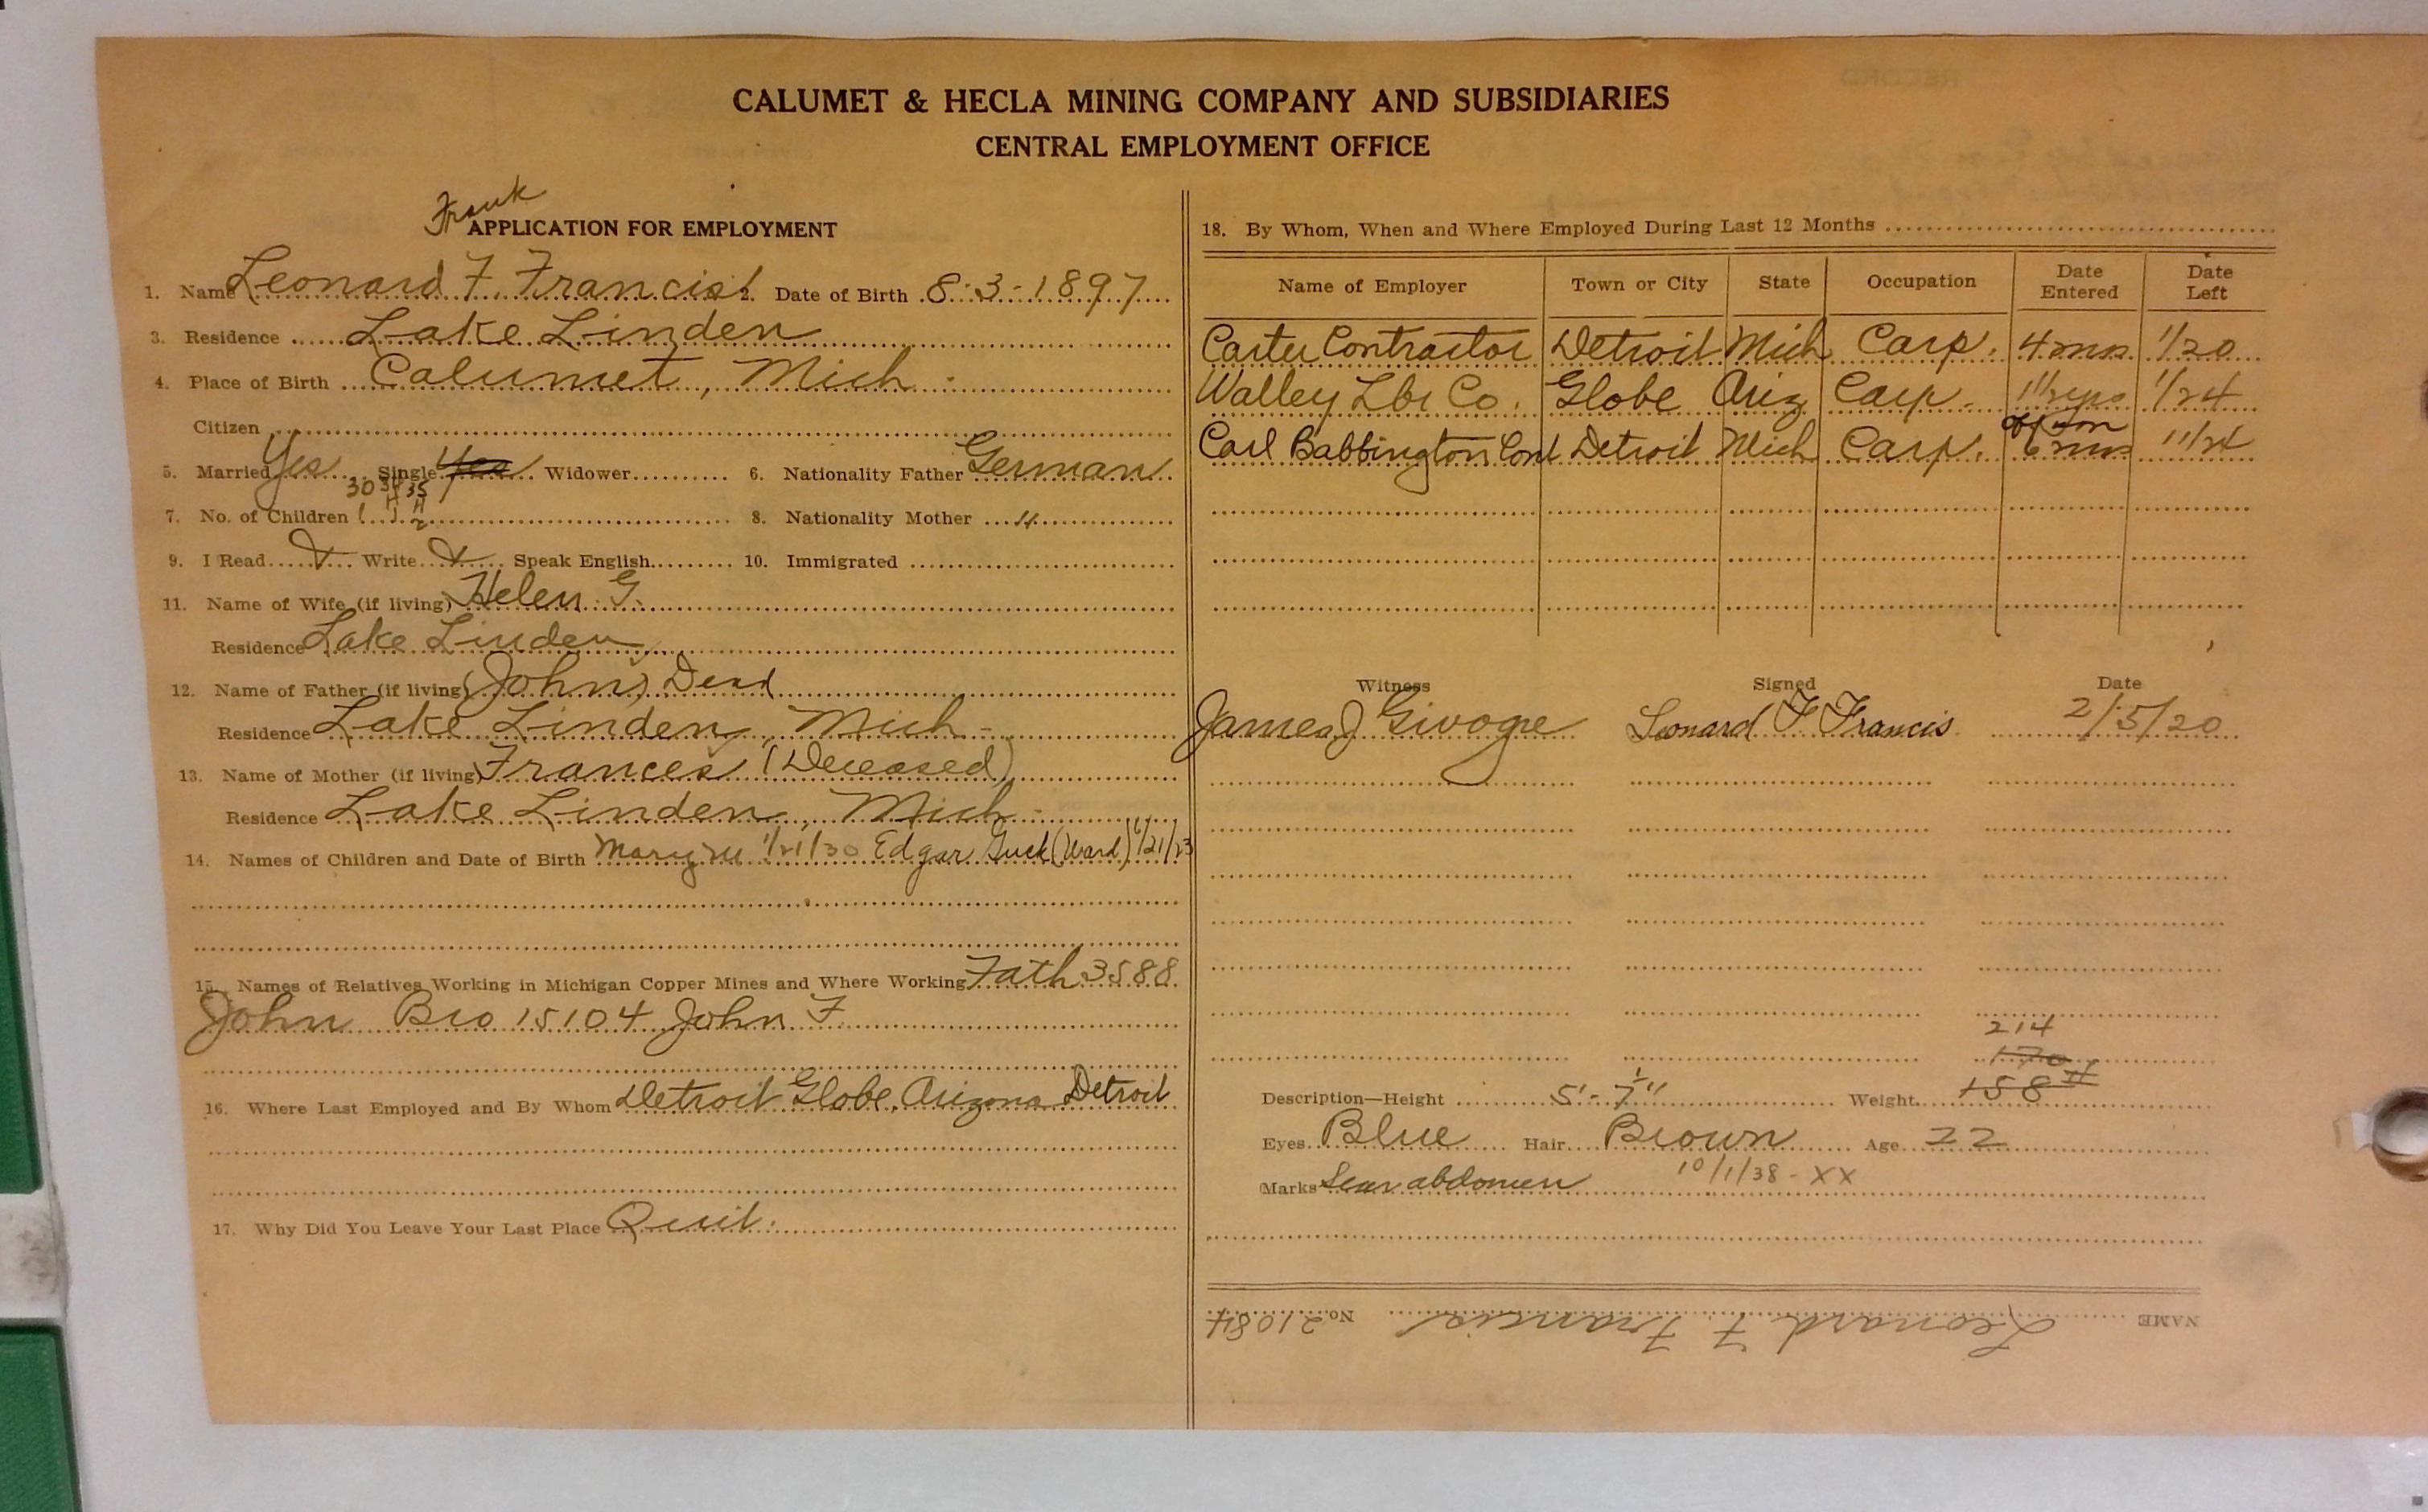 CALUMET & HECLA MINING COMPANY AND SUBSIDIARIES
CENTRAL EMPLOYMENT OFFICE
Frank
APPLICATION FOR EMPLOYMENT
1. Name Leonard F. Francis 2. Date of Birth 8-3-1897
3. Residence Lake Linden
4. Place of Birth Calumet, Mich.
Citizen
5. Married Yes Single Yes Widower 6. Nationality Father German
30 34 35
7. No. of Children 1 1 2 8. Nationality Mother "
9. I Read Write Speak English 10. Immigrated
11. Name of Wife (if living) Helen G.
Residence Lake Linden
12. Name of Father (if living) (John) Dead
Residence Lake Linden, Mich.
13. Name of Mother (if living) Frances (Deceased)
Residence Lake Linden, Mich.
14. Names of Children and Date of Birth Mary 1/21/30 Edgar Guck (Ward) 6/21/23
15. Names of Relatives Working in Michigan Copper Mines and Where Working Fath 3588
John Bro 15104 John F
16. Where Last Employed and By Whom Detroit Globe, Arizona Detroit
17. Why Did You Leave Your Last Place Quit.
18. By Whom, When and Where Employed During Last 12 Months
Name of Employer Town or City State Occupation Date Entered Date Left
Carter Contractor Detroit Mich Carp. 4 mos. 1/20
Walley Lbr Co. Globe Ariz Carp. 1 1/2 yrs 1/24
off & on
Carl Babbington Cont Detroit Mich Carp. 6 mos 11/24
Witness Signed Date
James J Givogre Leonard F Francis 2/5/20
214
170
Description—Height 5'-7 1/2" Weight 158 #
Eyes Blue Hair Brown Age 22
Marks Scar abdomen 10/1/38 - XX
NAME Leonard F. Francis No. 21084